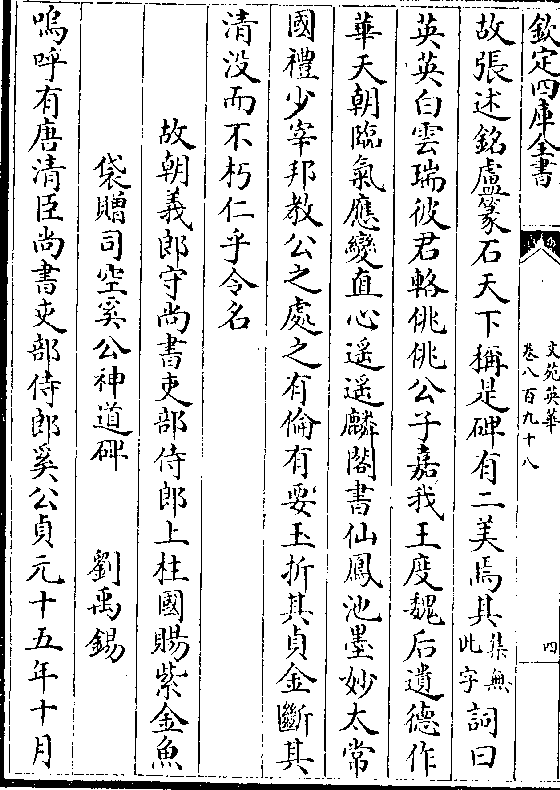 欽定四庫全書
文苑英華
卷八百九十八
四
故張述銘盧篆石天下稱是碑有二美焉其集無此字詞曰
英英白雲瑞彼君輅佻佻公子嘉我王度魏后遺德作
華天朝臨氣應變直心遥遥麟閣書仙鳳池墨妙太常
國禮少宰邦教公之處之有倫有要玉折其貞金斷其
清没而不朽仁乎令名
故朝義郎守尚書吏部侍郎上柱國賜紫金魚
袋贈司空奚公神道碑
劉禹錫
嗚呼有唐清臣尚書吏部侍郎奚公貞元十五年十月